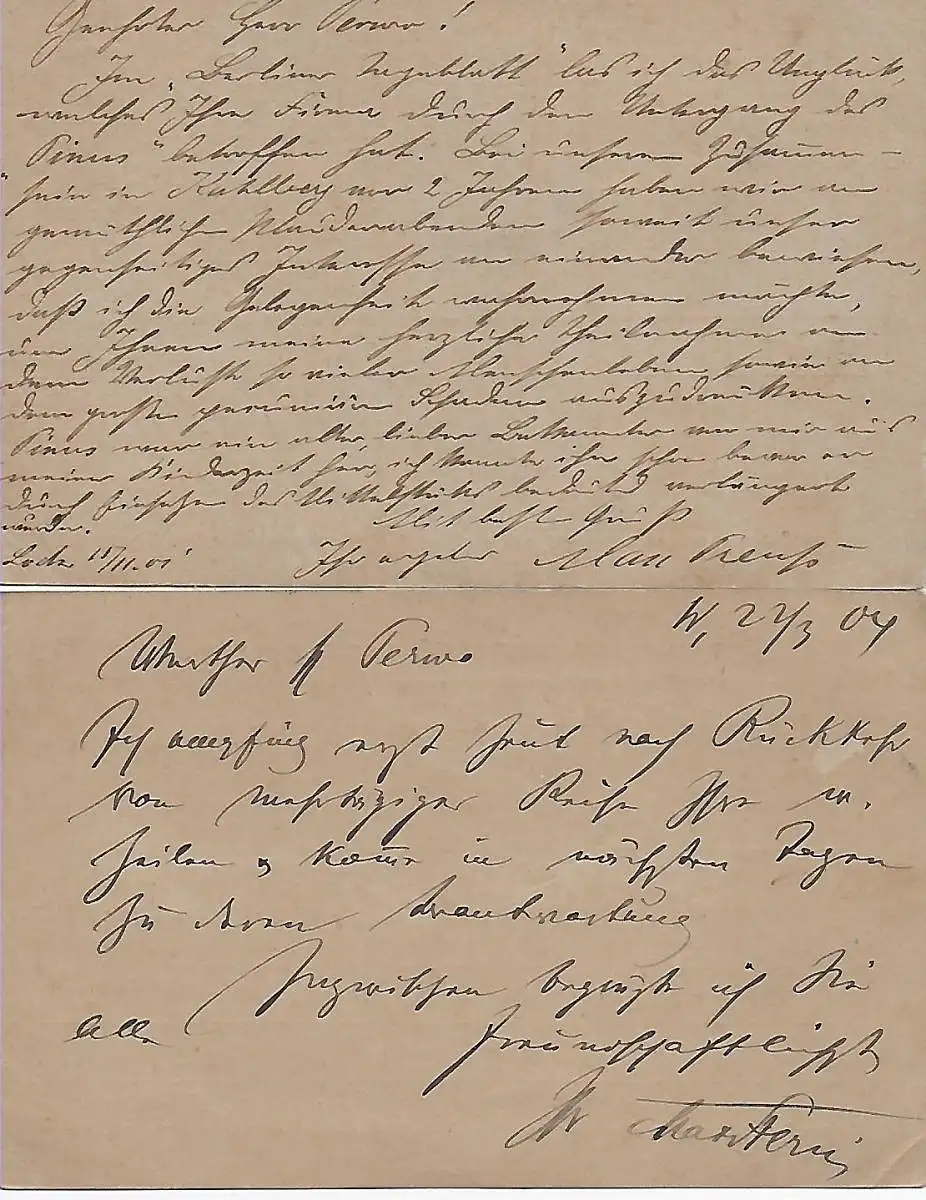 Geehrter Herr Perwo!
Im „Berliner Tageblatt" las ich das Unglück,
welches Ihre Firma durch den Untergang des
„Pinus" betroffen hat. Bei unserem Zusammen-
sein in Kahlberg vor 2 Jahren haben wir an
gemüthlichen Plauderabenden soweit unser
gegenseitiges Interesse an einander bewiesen,
daß ich die Gelegenheit wahrnehmen möchte,
um Ihnen meine herzliche Theilnahme an
dem Verluste so vieler Menschenleben sowie an
dem großen pecuniären Schaden auszudrücken.
Pinus war ein alter lieber Bekannter von mir aus
meiner Kinderzeit her, ich kannte ihn schon bevor er
durch Einsetzen des Mittelstücks bedeutend verlängert
wurde.
Mit besten Gruß
11/11. 01 Ihr ergeb Max
W, 22/3 04
Werther H Perwo
Ich empfing erst heut nach Rückkehr
von mehrtägiger Reise Ihre w.
Zeilen & komme in nächsten Tagen
zu deren Beantwortung
Inzwischen begrüße ich Sie
alle freundschaftlichst
Ihr Max